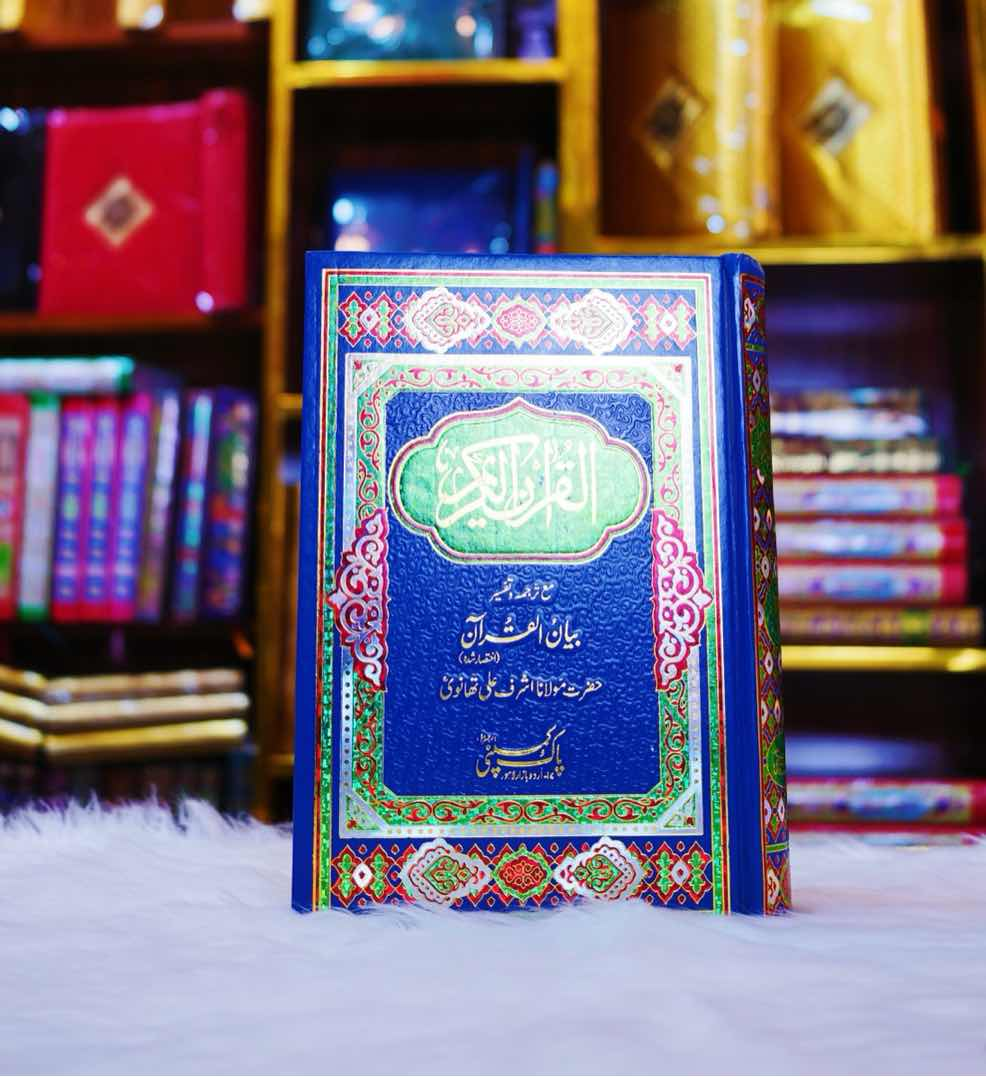 القرآن الكريم
مع ترجمہ و تفسیر
بیان القرآن
(اختصار شدہ)
حضرت مولانا اشرف علی تھانویؒ
پاک کمپنی
۱۷- اردو بازار لاہور